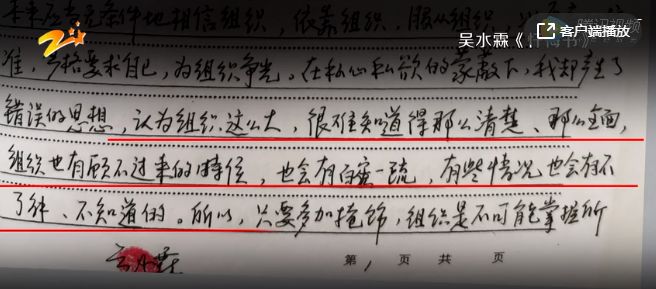 本来应该无条件地相信组织、依靠组织、服从组织,
吴水霖《忏悔书》
腾讯视频
客户端播放
准,严格要求自己,为组织争光。在私心私欲的蒙蔽下,我却产生了
错误的思想,认为组织这么大,很难知道得那么清楚、那么全面,
组织也有顾不过来的时候,也会有百密一疏,有些情况也会有不
了解、不知道的。所以,只要多加掩饰,组织是不可能掌握所
吴水霖
第1页共 页